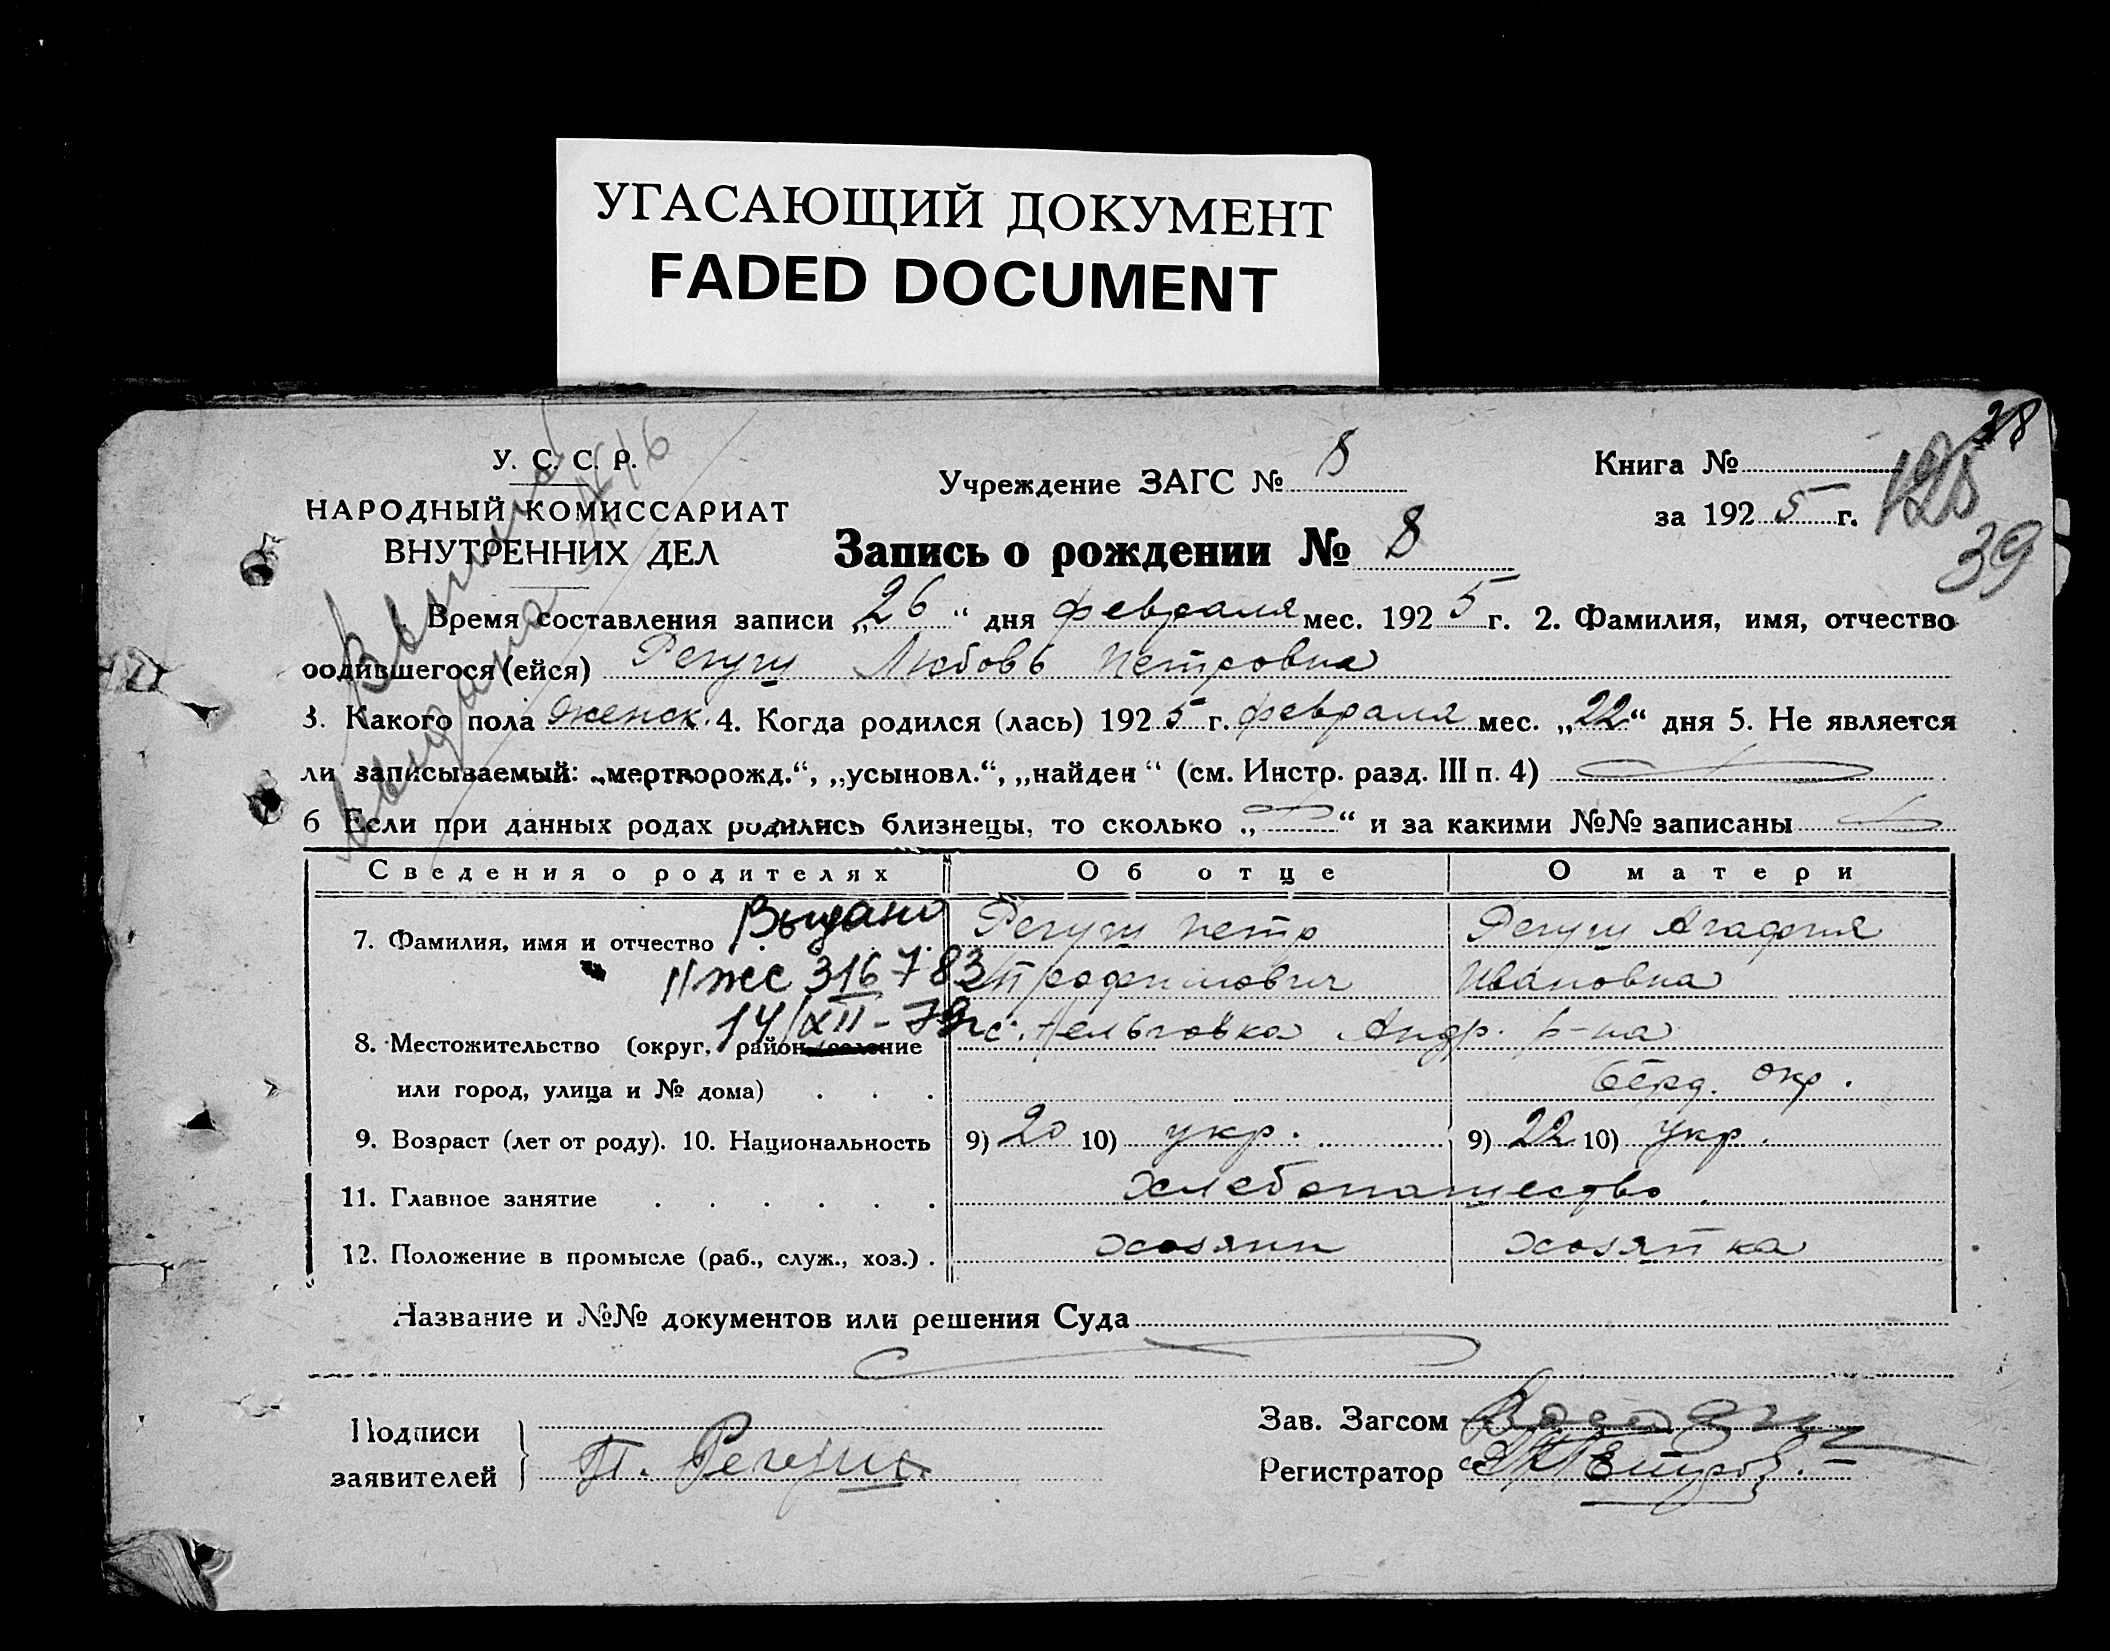 УГАСАЮЩИЙ ДОКУМЕНТ
FADED DOCUMENT
38
125
39
У. С. С. Р.
НАРОДНЫЙ КОМИССАРИАТ
ВНУТРЕННИХ ДЕЛ
Учреждение ЗАГС № 8
Книга №
за 1925 г.
Запись о рождении № 8
Время составления записи „26“ дня февраля мес. 1925 г. 2. Фамилия, имя, отчество
родившегося (ейся) Регуш Любовь Петровна
3. Какого пола женск. 4. Когда родился (лась) 1925 г. февраля мес. „22“ дня 5. Не является
ли записываемый: „мертворожд.“, „усыновл.“, „найден“ (см. Инстр. разд. III п. 4)
6 Если при данных родах родились близнецы, то сколько „ “ и за какими №№ записаны
Сведения о родителях Об отце О матери
Выдано
7. Фамилия, имя и отчество Регуш Петр Регуш Агафия
II жс 316783 Трофимович Ивановна
14/XII-79г
8. Местожительство (округ, район, селение с. Андр. р-на
или город, улица и № дома) Берд. окр.
9. Возраст (лет от роду). 10. Национальность 9) 20 10) укр. 9) 22 10) укр.
11. Главное занятие хлебопашество
12. Положение в промысле (раб., служ., хоз.) хозяин хозяйка
Название и №№ документов или решения Суда
Подписи
заявителей П. Регуш
Зав. Загсом
Регистратор